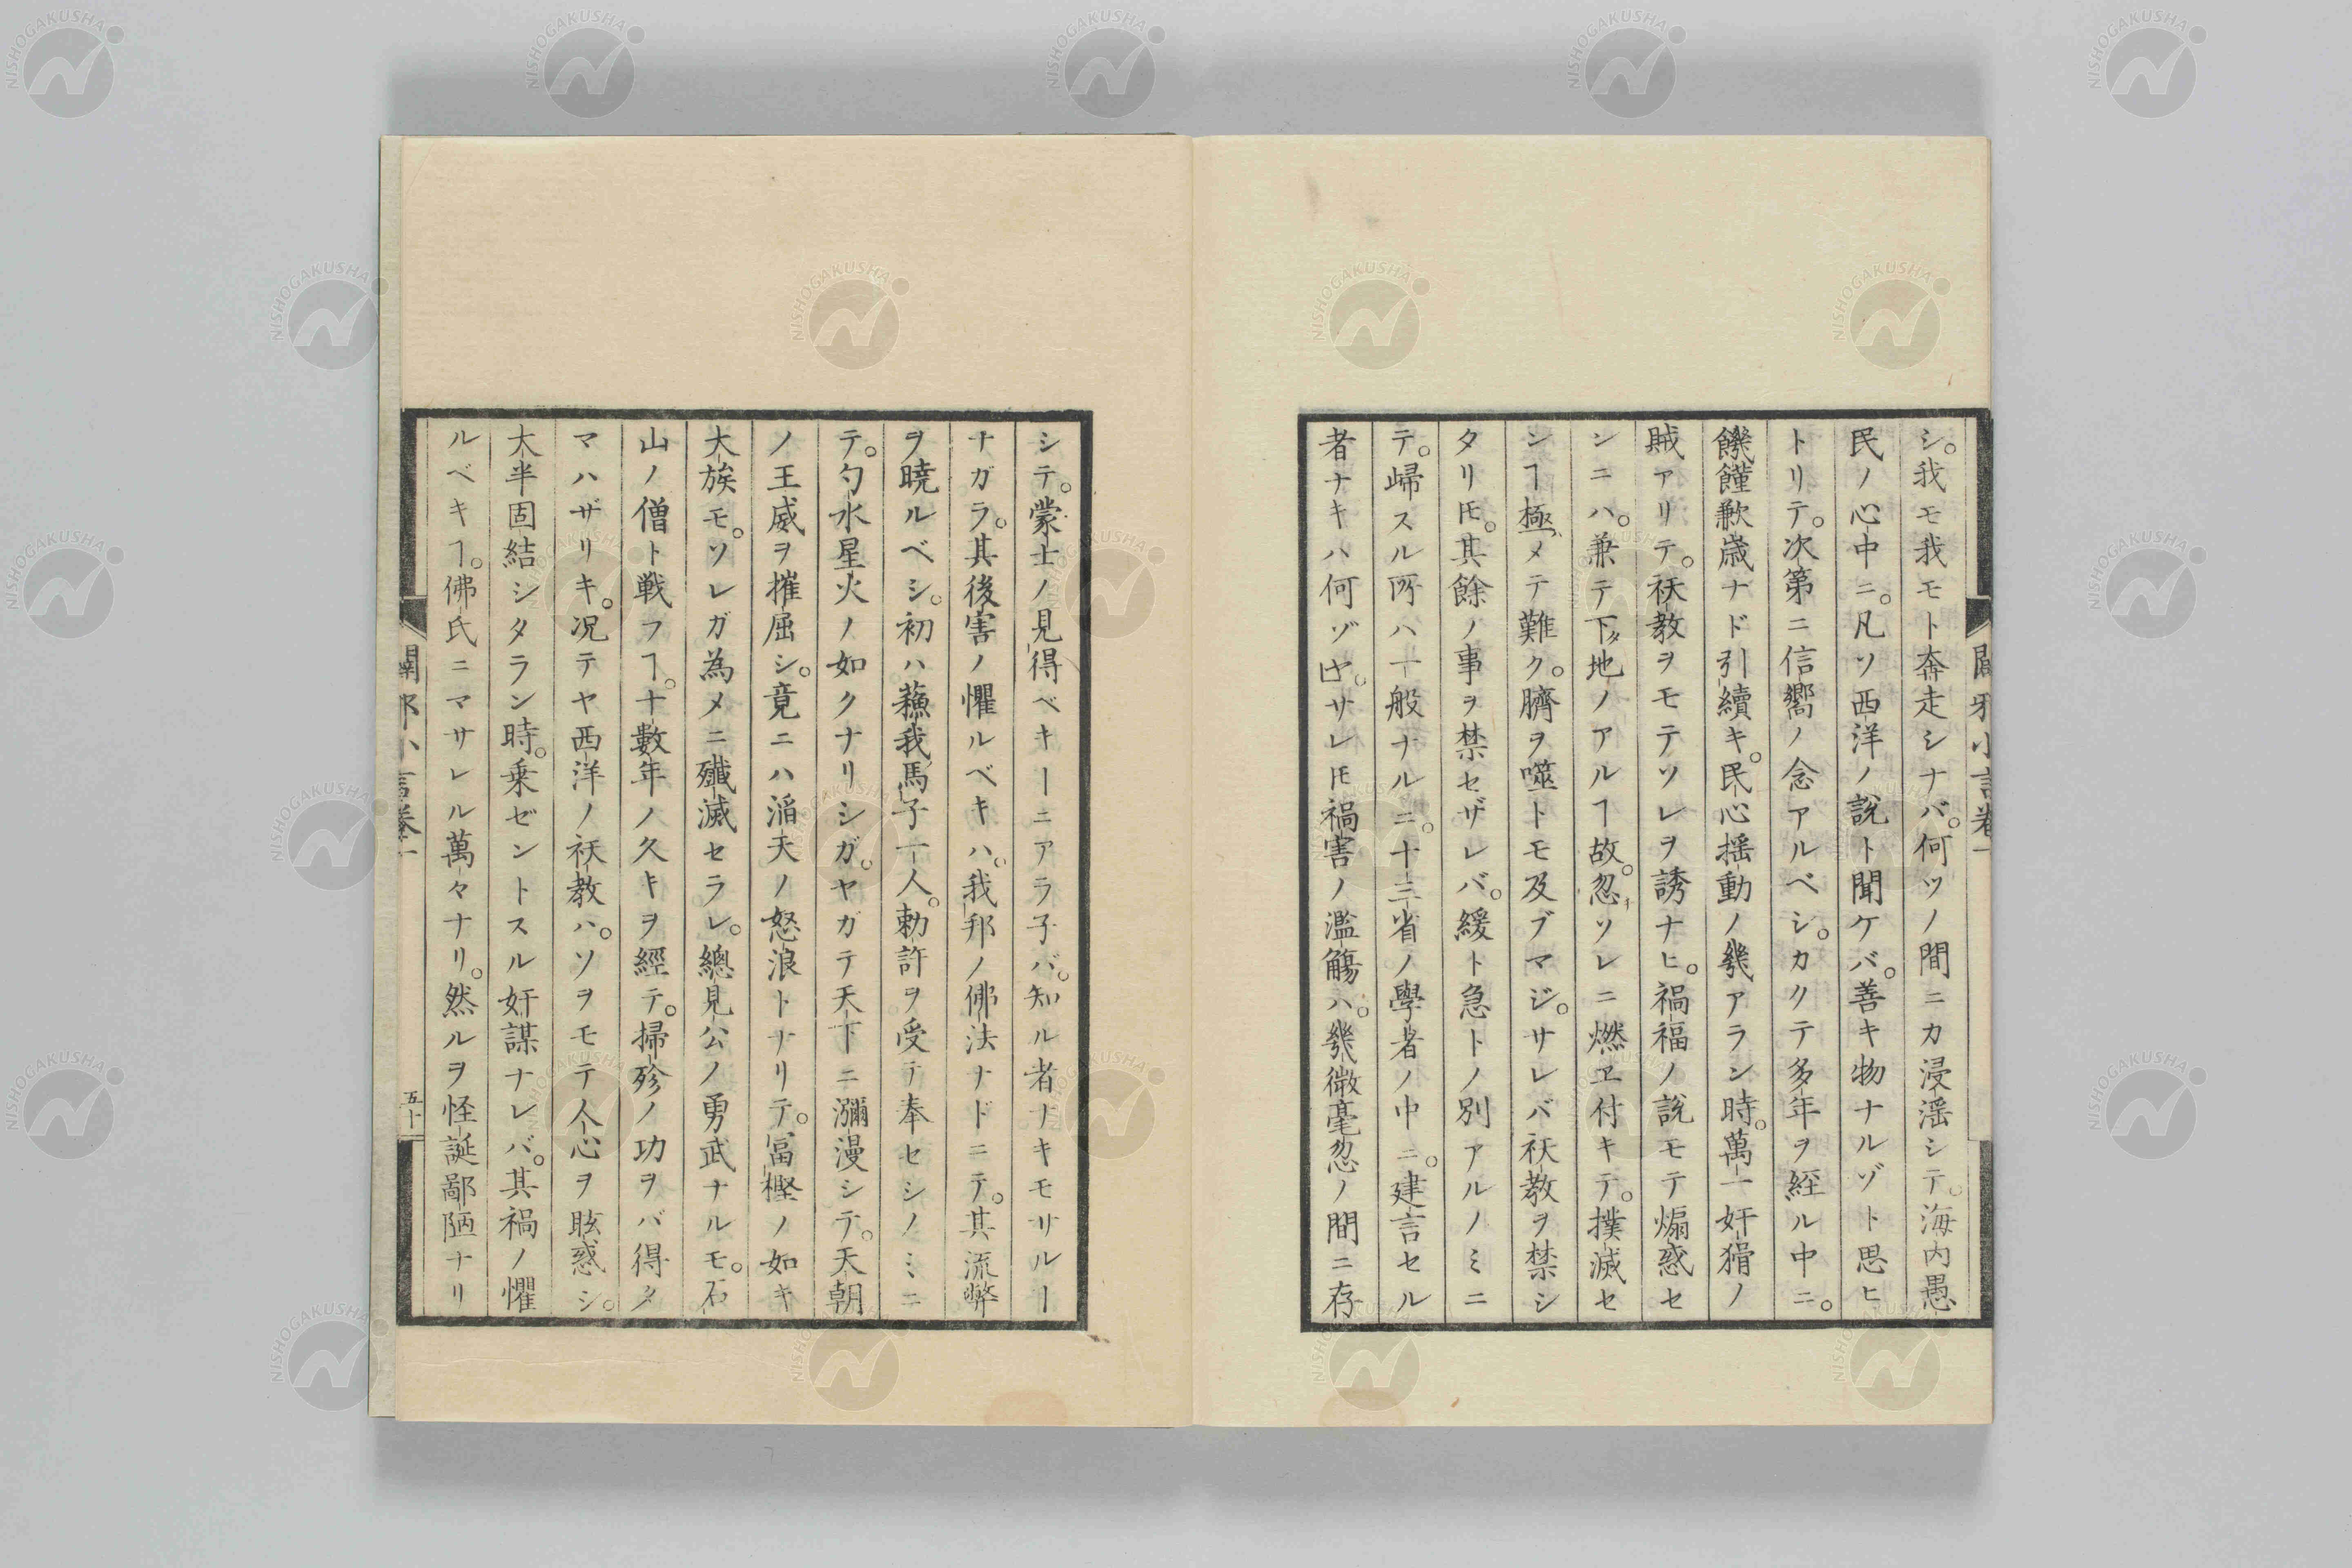 シ。我モ我モト奔走シナバ。何ツノ間ニカ浸滛シテ。海内愚
民ノ心中ニ。凡ソ西洋ノ說ト聞ケバ。善キ物ナルゾト思ヒ
トリテ。次第ニ信嚮ノ念アルベシ。カクテ多年ヲ經ル中ニ。
饑饉歉歳ナド引續キ。民心揺動ノ幾アラン時。萬一奸猾ノ
賊アリテ。祅教ヲモテソレヲ誘ナヒ。禍福ノ說モテ煽惑セ
ンニハ。兼テ下タ地ノアルヿ故。忽チソレニ燃エ付キテ。撲滅セ
ンヿ極メテ難ク。臍ヲ噬トモ及ブマジ。サレバ祅教ヲ禁シ
タリ𪜈。其餘ノ事ヲ禁セザレバ。緩ト急トノ別アルノミニ
テ。歸スル所ハ一般ナルニ。十三省ノ學者ノ中ニ。建言セル
者ナキハ何ゾヤ。サレ𪜈禍害ノ濫觴ハ。幾微毫忽ノ間ニ存
闢邪小言卷一
シテ。蒙士ノ見得ベキーニアラ子バ。知ル者ナキモサルー
ナガラ。其後害ノ懼ルベキハ。我邦ノ佛法ナドニテ。其流弊
ヲ曉ルベシ。初ハ蘓我馬子一人。勅許ヲ受テ奉セシノミニ
テ。勺水星火ノ如クナリシガ。ヤガテ天下ニ瀰漫シテ。天朝
ノ王威ヲ摧屈シ。竟ニハ滔天ノ怒浪トナリテ。冨樫ノ如キ
大族モ。ソレガ為メニ殲滅セラレ。總見公ノ勇武ナルモ。石
山ノ僧ト戰フヿ。十數年ノ久キヲ經テ。掃殄ノ功ヲバ得タ
マハザリキ。况テヤ西洋ノ祅教ハ。ソヲモテ人心ヲ眩惑シ。
大半固結シタラン時。乗ゼントスル奸謀ナレバ。其禍ノ懼
ルベキヿ。佛氏ニマサレル萬々ナリ。然ルヲ怪誕鄙陋ナリ
闢邪小言卷一
五十